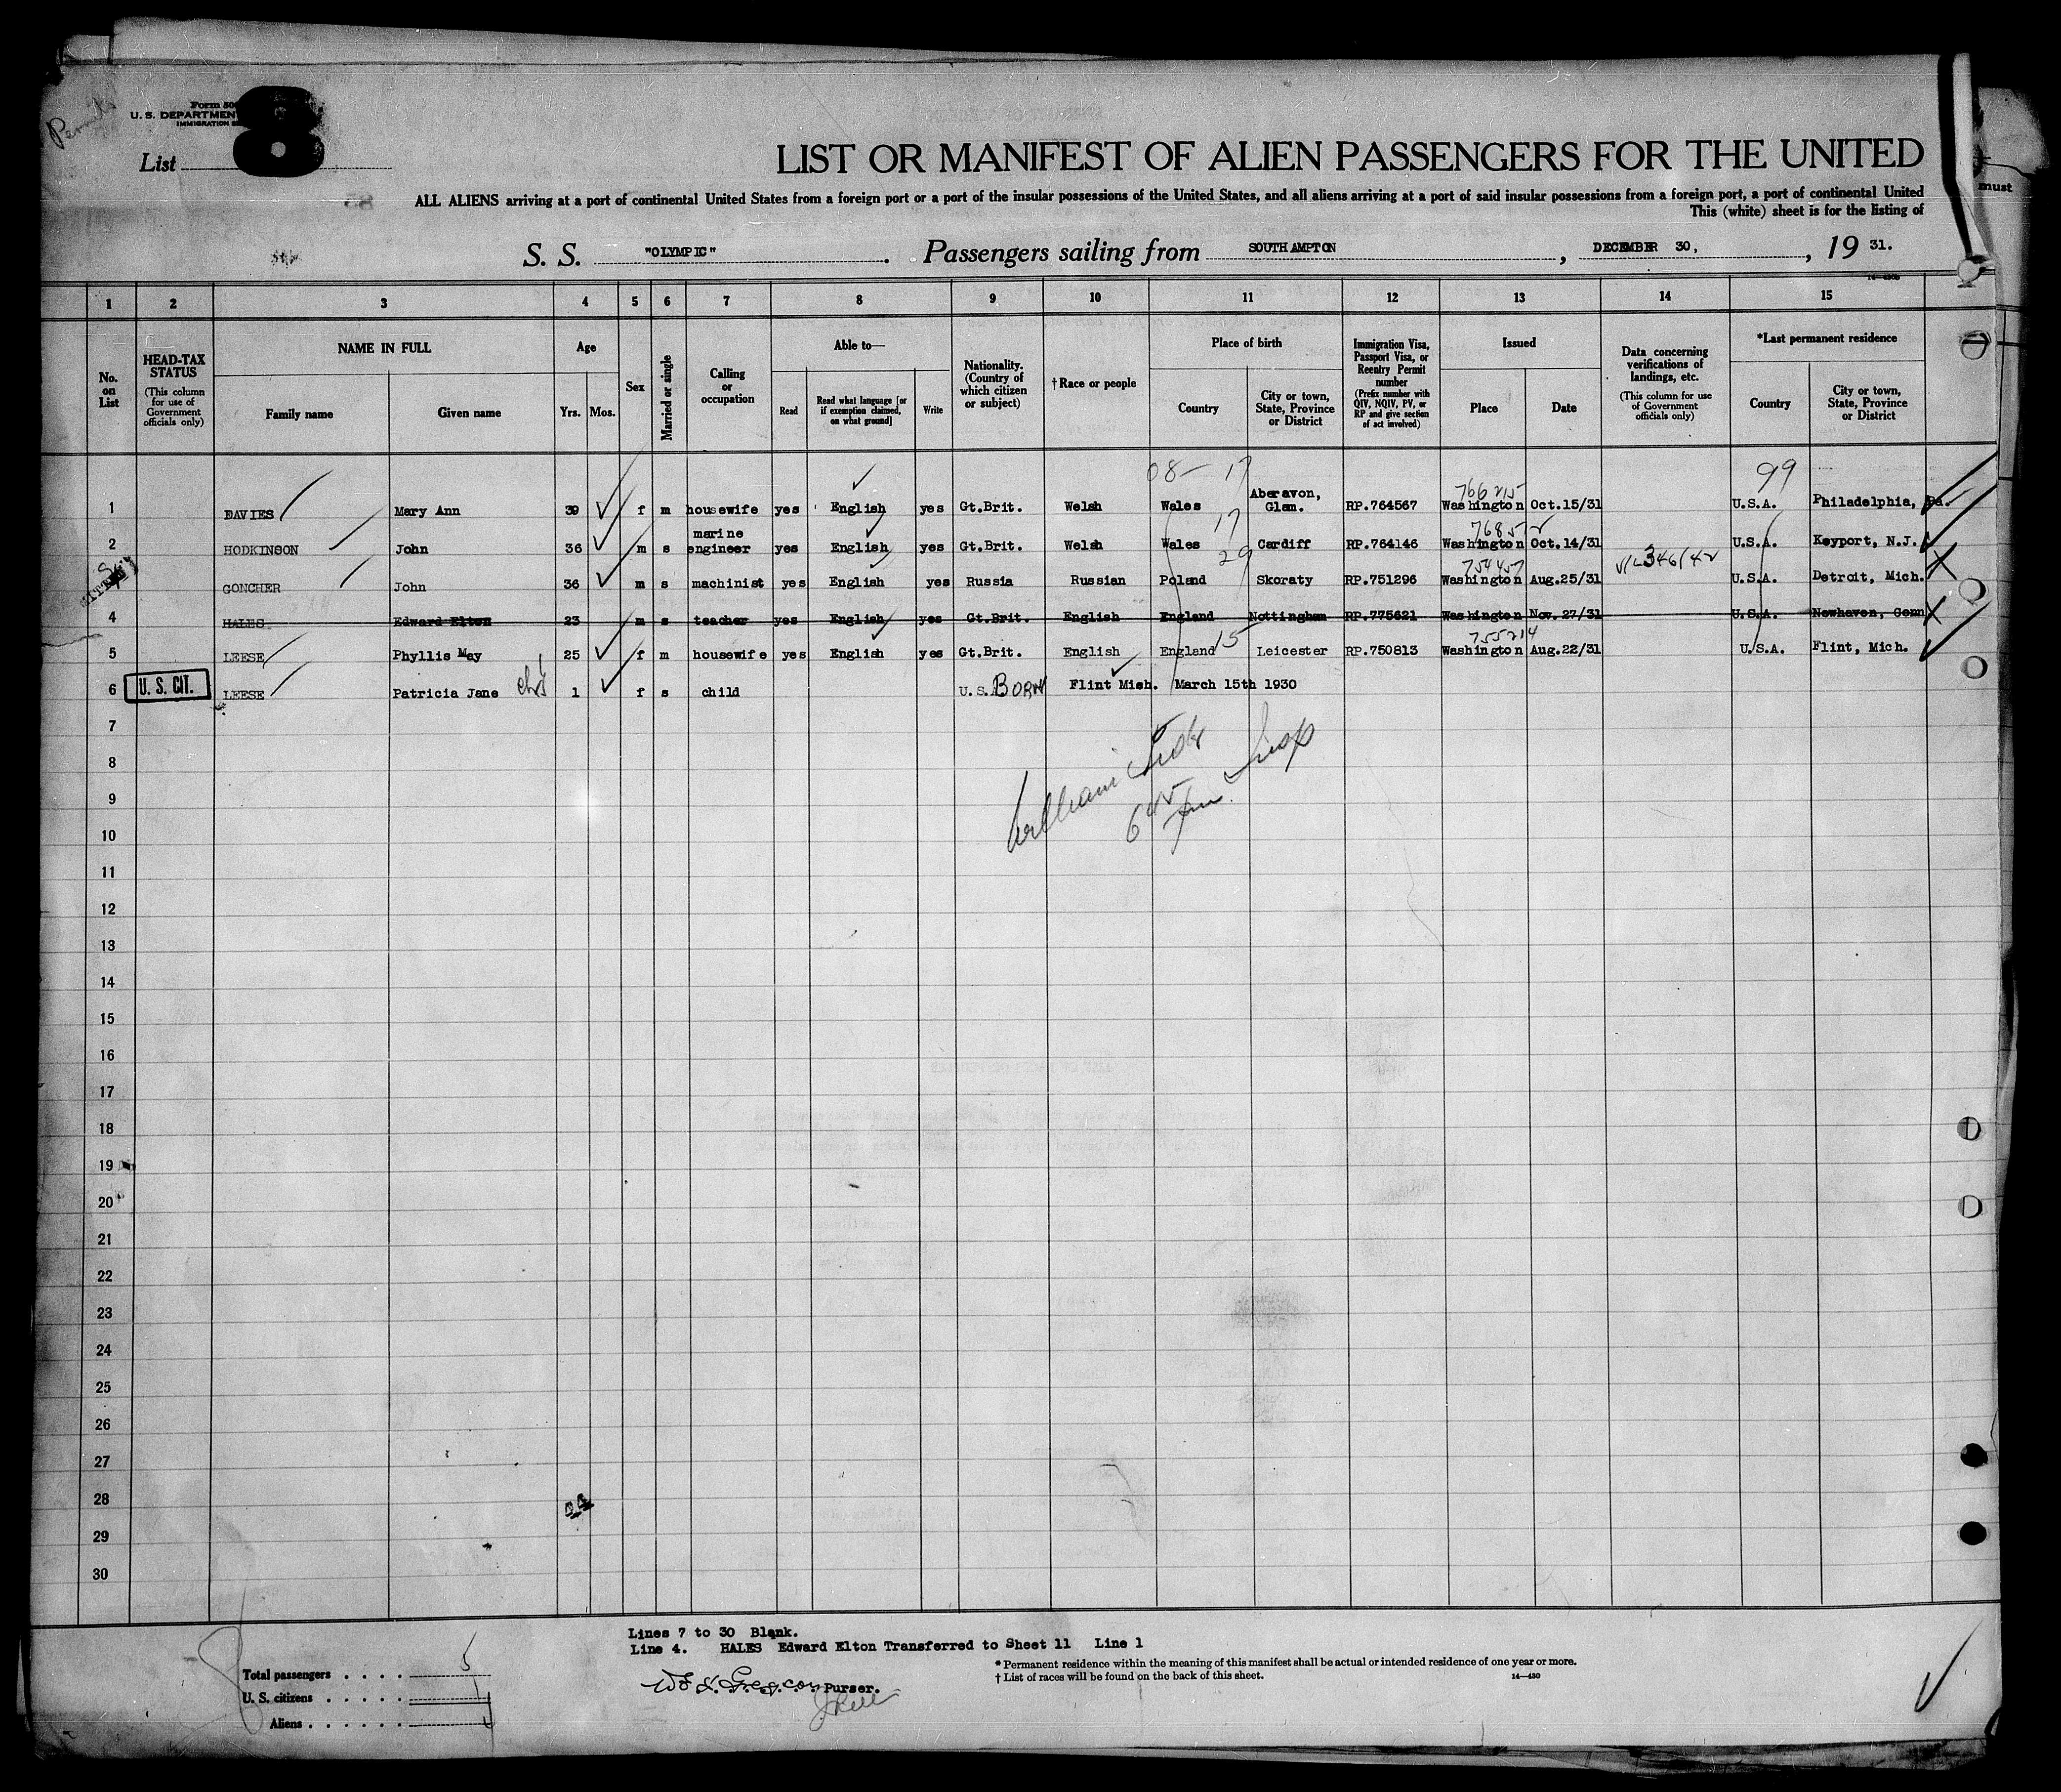 Form 500
U. S. DEPARTMENT
IMMIGRATION
List 8
LIST OR MANIFEST OF ALIEN PASSENGERS FOR THE UNITED
must
ALL ALIENS arriving at a port of continental United States from a foreign port or a port of the insular possessions of the United States, and all aliens arriving at a port of said insular possessions from a foreign port, a port of continental United
This (white) sheet is for the listing of
S. S. "OLYMPIC". Passengers sailing from SOUTHAMPTON, DECEMBER 30, 19 31.
1 2 3 4 5 6 7 8 9 10 11 12 13 14 15
No. on List
HEAD-TAX STATUS (This column for use of Government officials only)
NAME IN FULL
Family name
Given name
Age
Yrs. Mos.
Sex
Married or single
Calling or occupation
Able to—
Read
Read what language [or if exemption claimed, on what ground]
Write
Nationality. (Country of which citizen or subject)
†Race or people
Place of birth
Country
City or town, State, Province or District
Immigration Visa, Passport Visa, or Reentry Permit number (Prefix number with QIV, NQIV, PV, or RP and give section of act involved)
Issued
Place
Date
Data concerning verifications of landings, etc. (This column for use of Government officials only)
*Last permanent residence
Country
City or town, State, Province or District
08 - 17 99
766215
1 DAVIES Mary Ann 39 f m housewife yes English yes Gt.Brit. Welsh Wales Aberavon, Glam. RP.764567 Washington Oct.15/31 U.S.A. Philadelphia, Pa.
17
2 HODKINSON John 36 m s marine engineer yes English yes Gt.Brit. Welsh Wales Cardiff RP.764146 Washington Oct.14/31 U.S.A. Keyport, N.J.
29 754457
GONCHER John 36 m s machinist yes English yes Russia Russian Poland Skoraty RP.751296 Washington Aug.25/31 U.S.A. Detroit, Mich.
4 HALES Edward Elton 23 m s teacher yes English yes Gt.Brit. English England Nottingham RP.775621 Washington Nov.27/31 U.S.A. Newhaven, Conn
15 755214
5 LEESE Phyllis May 25 f m housewife yes English yes Gt.Brit. English England Leicester RP.750813 Washington Aug.22/31 U.S.A. Flint, Mich.
6 U. S. CIT. LEESE Patricia Jane 1 f s child U.S. BORN Flint Mich. March 15th 1930
7
8
9
10
11
12
13
14
15
16
17
18
19
20
21
22
23
24
25
26
27
28
29
30
Lines 7 to 30 Blank.
Line 4. HALES Edward Elton Transferred to Sheet 11 Line 1
* Permanent residence within the meaning of this manifest shall be actual or intended residence of one year or more.
† List of races will be found on the back of this sheet. 14—430
Purser.
Total passengers . . . . 5
U. S. citizens . . . . . 1
Aliens . . . . . .